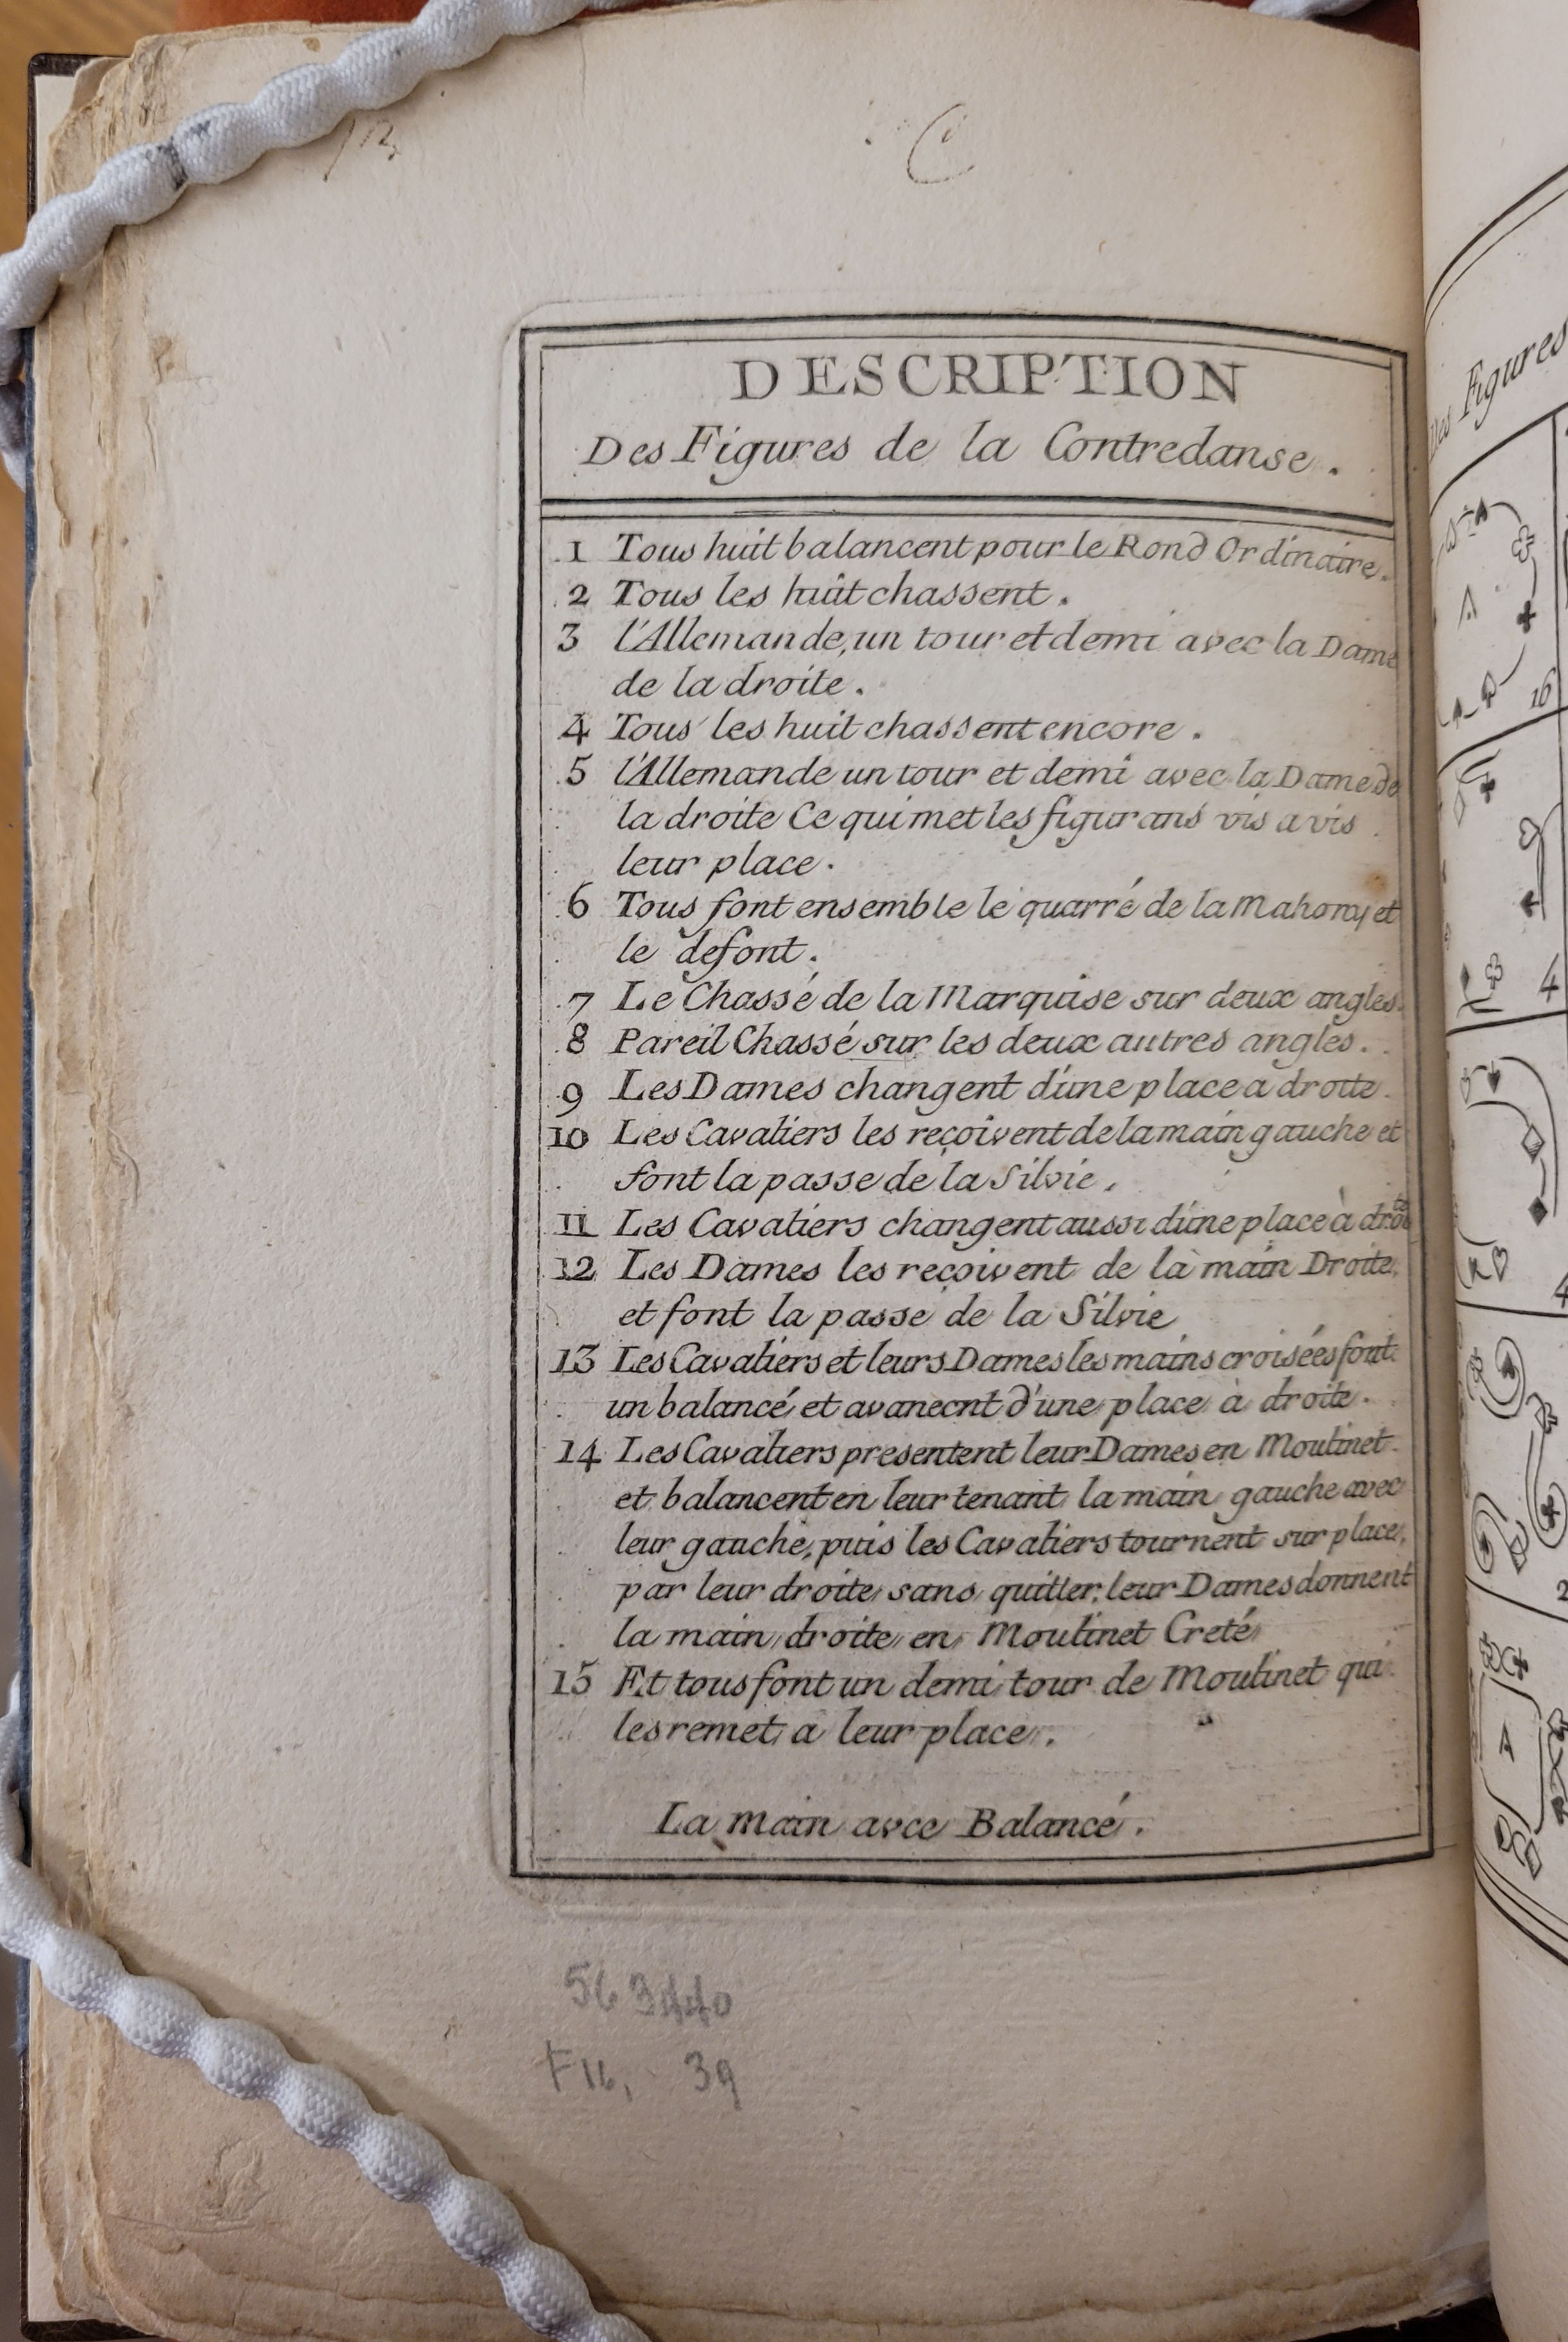 C
DESCRIPTION
Des Figures de la Contredanse.
1 Tous huit balancent pour le Rond Ordinaire.
2 Tous les huit chassent.
3 l'Allemande, un tour et demi avec la Dame
de la droite.
4 Tous les huit chassent encore.
5 l'Allemande un tour et demi avec la Dame de
la droite Ce qui met les figurans vis a vis
leur place.
6 Tous font ensemble le quarré de la Mahony et
le defont.
7 Le Chassé de la Marquise sur deux angles.
8 Pareil Chassé sur les deux autres angles.
9 Les Dames changent d'une place a droite.
10 Les Cavaliers les reçoivent de la main gauche et
font la passe de la Silvie.
11 Les Cavaliers changent aussi d'une place à droite
12 Les Dames les reçoivent de la main Droite,
et font la passe de la Silvie
13 Les Cavaliers et leurs Dames les mains croisées font
un balancé et avanecnt d'une place à droite.
14 Les Cavaliers presentent leur Dames en Moulinet
et balancent en leur tenant la main gauche avec
leur gauche, puis les Cavaliers tournent sur place,
par leur droite sans quitter, leur Dames donnent
la main droite en Moulinet Creté
15 Et tous font un demi tour de Moulinet qui
les remet a leur place.
La main avce Balancé.
563440
39
Figures
16
4
4
2